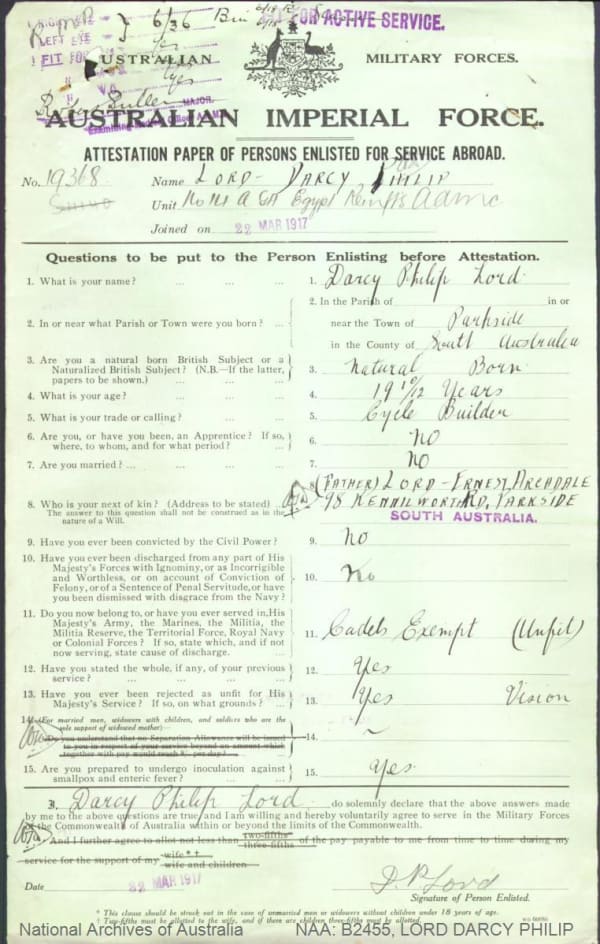 RIGHT EYE 6/36
LEFT EYE
FIT FOR ACTIVE SERVICE.
AUSTRALIAN MILITARY FORCES.
MAJOR.
AUSTRALIAN IMPERIAL FORCE.
ATTESTATION PAPER OF PERSONS ENLISTED FOR SERVICE ABROAD.
No. 19368 Name LORD - DARCY PHILIP
Unit Egypt Reinfts AAMC
Joined on 22 MAR 1917
Questions to be put to the Person Enlisting before Attestation.
1. What is your name? ... ... 1. Darcy Philip Lord
2. In or near what Parish or Town were you born? ... 2. In the Parish of in or
near the Town of Parkside
in the County of South Australia
3. Are you a natural born British Subject or a
Naturalized British Subject? (N.B.—If the latter,
papers to be shown.) ... ... 3. Natural Born
4. What is your age? ... ... 4. 19 10/12 Years
5. What is your trade or calling? ... ... 5. Cycle Builder
6. Are you, or have you been, an Apprentice? If so,
where, to whom, and for what period? ... 6. No
7. Are you married? ... ... ... 7. No
8. Who is your next of kin? (Address to be stated)
The answer to this question shall not be construed as in the
nature of a Will. 8. (FATHER) LORD - ERNEST ARCHDALE
98 KENNILWORTH RD, PARKSIDE
SOUTH AUSTRALIA.
9. Have you ever been convicted by the Civil Power? ... 9. No
10. Have you ever been discharged from any part of His
Majesty's Forces with Ignominy, or as Incorrigible
and Worthless, or on account of Conviction of
Felony, or of a Sentence of Penal Servitude, or have
you been dismissed with disgrace from the Navy? 10. No
11. Do you now belong to, or have you ever served in, His
Majesty's Army, the Marines, the Militia, the
Militia Reserve, the Territorial Force, Royal Navy
or Colonial Forces? If so, state which, and if not
now serving, state cause of discharge. ... 11. Cadets Exempt (Unfit)
12. Have you stated the whole, if any, of your previous
service? ... ... ... 12. Yes
13. Have you ever been rejected as unfit for His
Majesty's Service? If so, on what grounds? ... 13. Yes Vision
14. (For married men, widowers with children, and soldiers who are the
sole support of widowed mother)—
Do you understand that no Separation Allowance will be issued
to you in respect of your service beyond an amount which
together with pay would reach 8/- per day? ... 14. ~
15. Are you prepared to undergo inoculation against
smallpox and enteric fever? ... ... 15. Yes.
I, Darcy Philip Lord do solemnly declare that the above answers made
by me to the above questions are true, and I am willing and hereby voluntarily agree to serve in the Military Forces
of the Commonwealth of Australia within or beyond the limits of the Commonwealth.
And I further agree to allot not less than two-fifths three-fifths of the pay payable to me from time to time during my
service for the support of my wife*† wife and children
Date 22 MAR 1917 D. P. Lord
Signature of Person Enlisted.
* This clause should be struck out in the case of unmarried men or widowers without children under 18 years of age.
† Two-fifths must be allotted to the wife, and if there are children three-fifths must be allotted.
National Archives of Australia NAA: B2455, LORD DARCY PHILIP